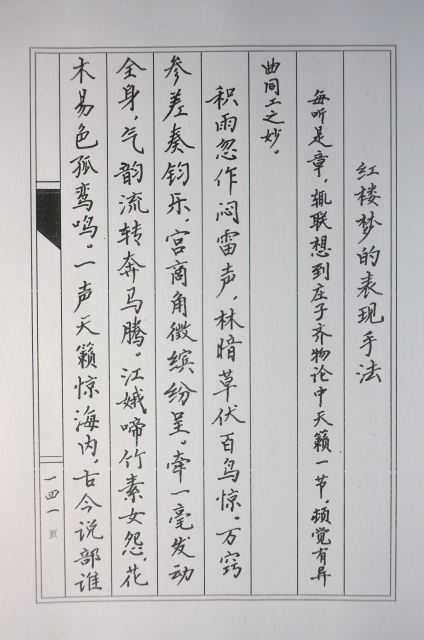 红楼梦的表现手法
每听是章，辄联想到庄子齐物论中天籁一节，顿觉有异
曲同工之妙。
积雨忽作闷雷声，林暗草伏百鸟惊。万窍
参差奏钧乐，宫商角徵缤纷呈。牵一毫发动
全身，气韵流转奔马腾。江娥啼竹素女怨，花
木易色孤鸾鸣。一声天籁惊海内，古今说部谁
一四一页